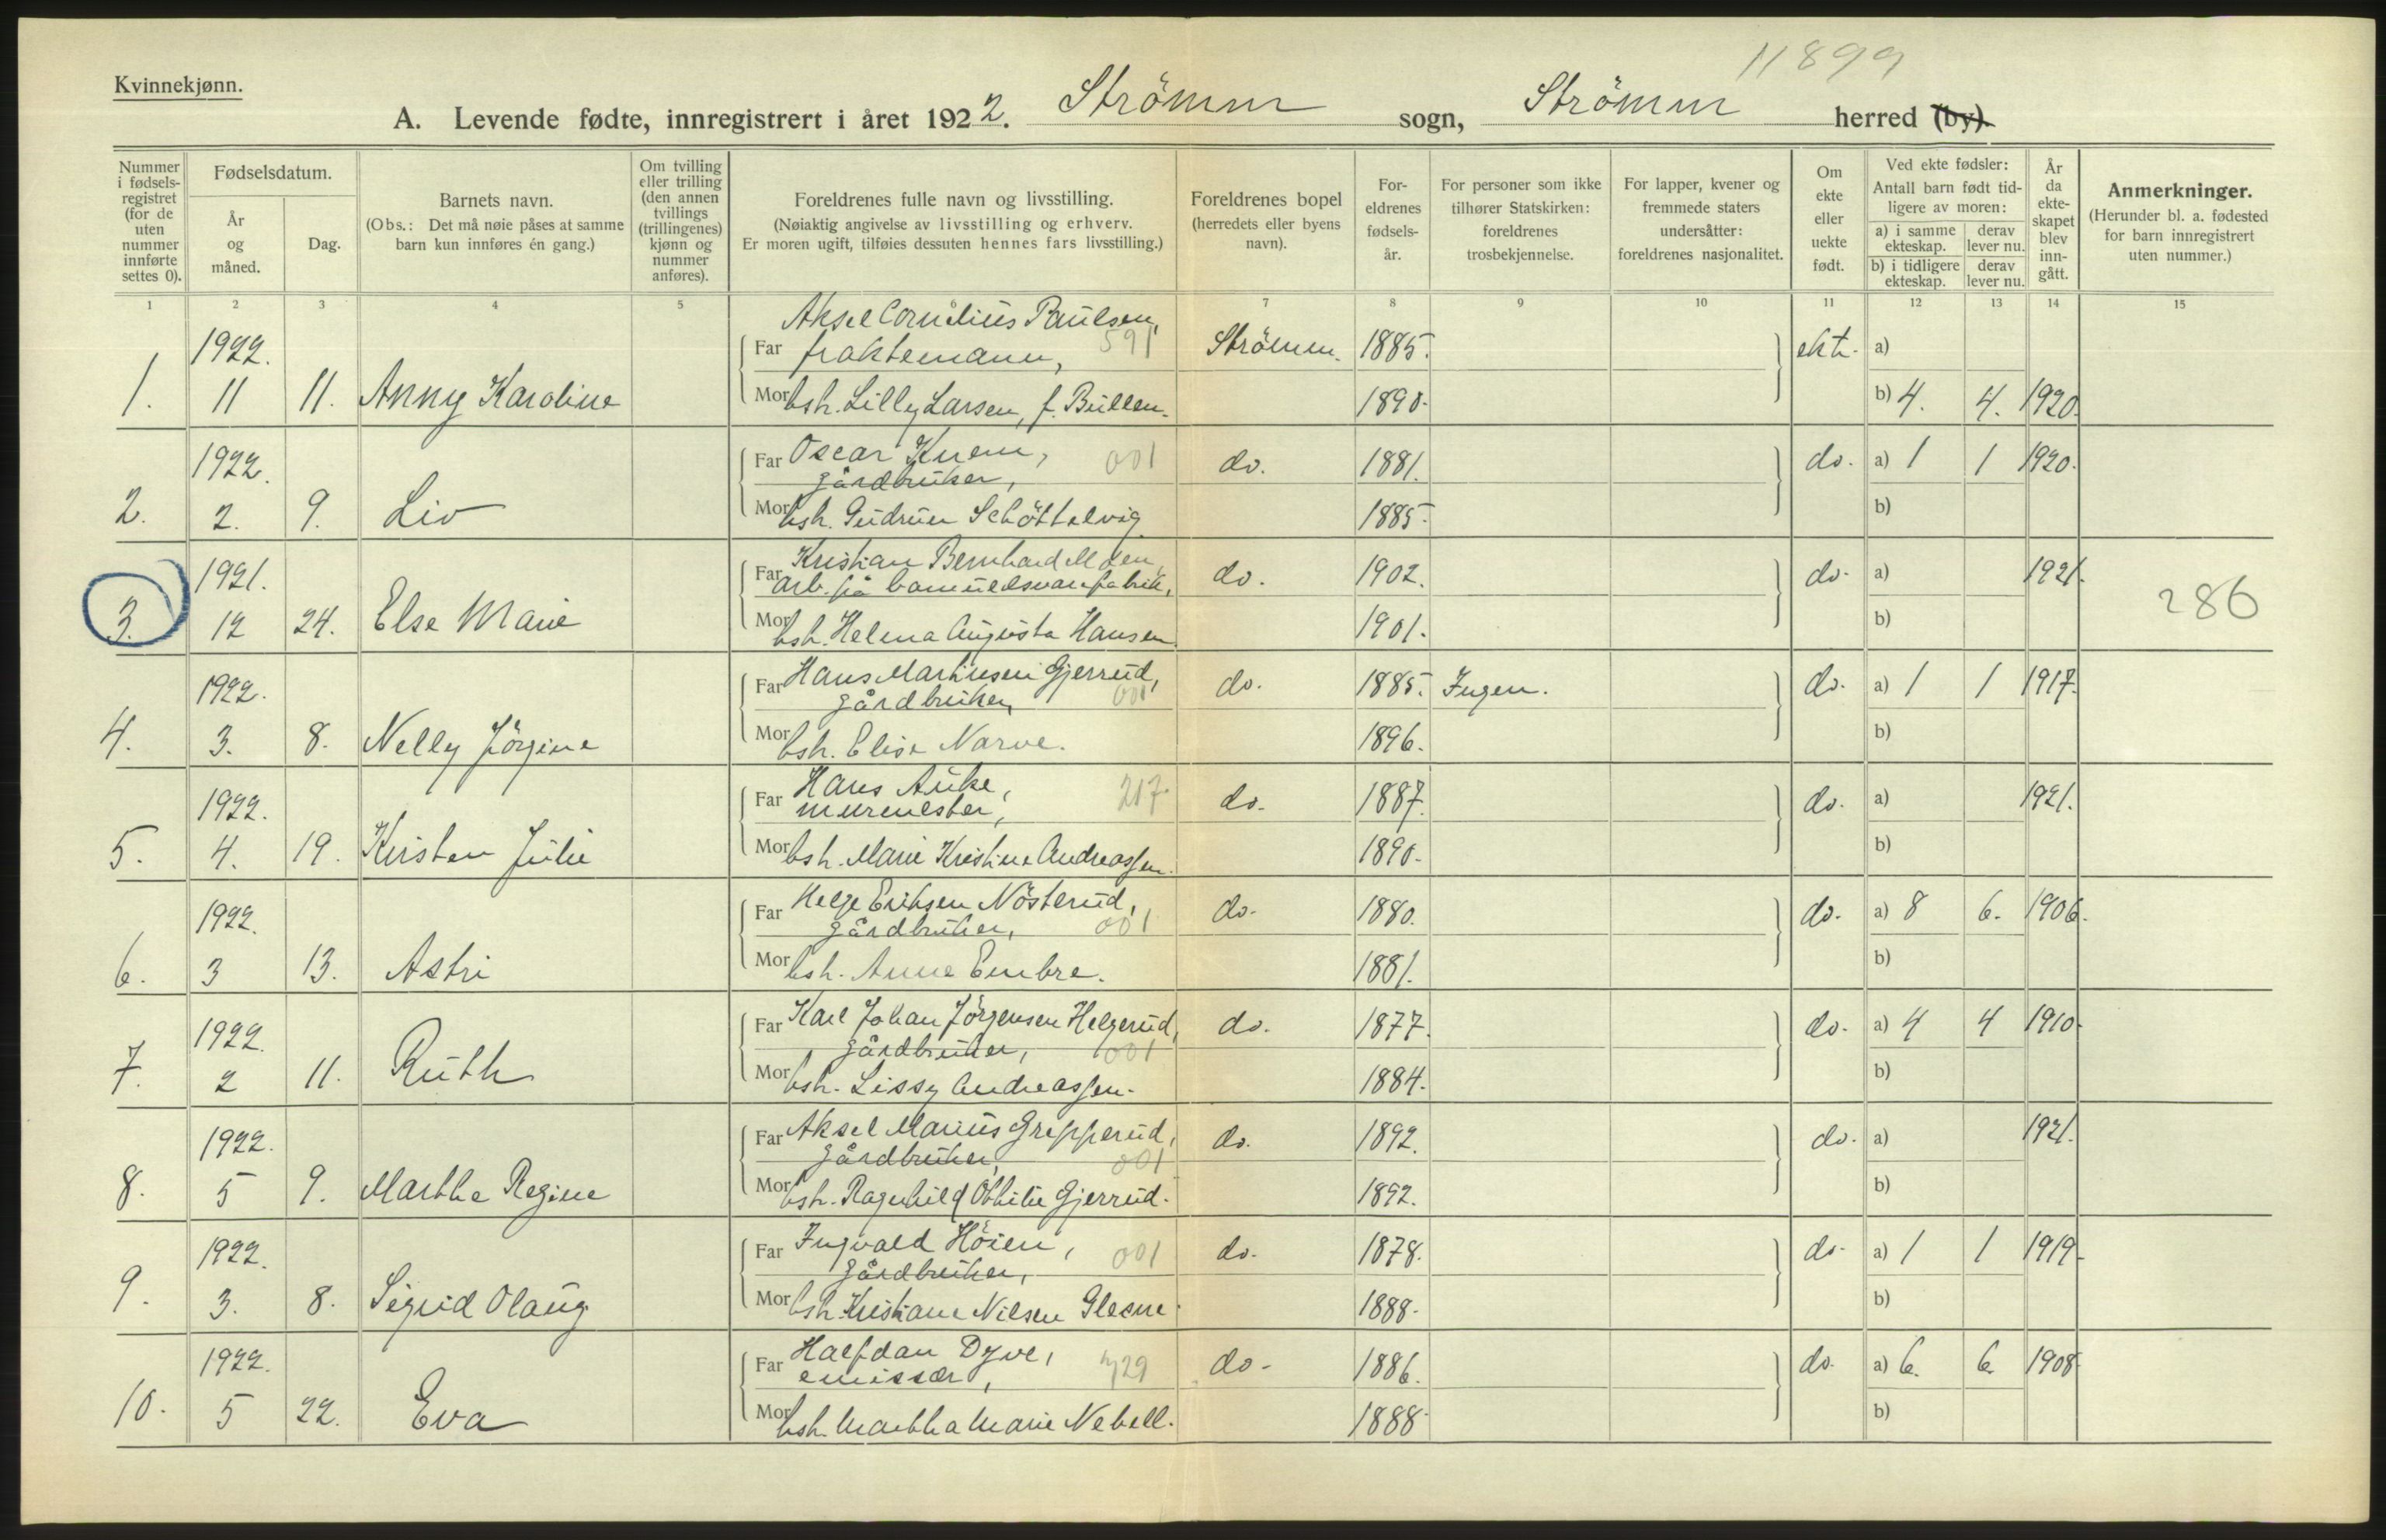 11899
Kvinnekjønn.
A. Levende fødte, innregistrert i året 1922. Strömm sogn, Strömm herred (by).
Nummer i fødsels-registret (for de uten nummer innførte settes 0).
Fødselsdatum.
År og måned.
Dag.
Barnets navn.
(Obs.: Det må nøie påses at samme barn kun innføres én gang.)
Om tvilling eller trilling (den annen tvillings (trillingenes) kjønn og nummer anføres).
Foreldrenes fulle navn og livsstilling.
(Nøiaktig angivelse av livsstilling og erhverv. Er moren ugift, tilføies dessuten hennes fars livsstilling.)
Foreldrenes bopel (herredets eller byens navn).
For-eldrenes fødsels-år.
For personer som ikke tilhører Statskirken: foreldrenes trosbekjennelse.
For lapper, kvener og fremmede staters undersåtter: foreldrenes nasjonalitet.
Om ekte eller uekte født.
Ved ekte fødsler:
Antall barn født tid-ligere av moren:
a) i samme ekteskap. derav lever nu.
b) i tidligere ekteskap. derav lever nu.
År da ekte-skapet blev inn-gått.
Anmerkninger.
(Herunder bl. a. fødested for barn innregistrert uten nummer.)
1 2 3 4 5 6 7 8 9 10 11 12 13 14 15
Aksel Cornelius Paulsen,
1922. Far fraktemann, 591 Strömm. 1885. ekte. a)
1. 11 11. Anny Karoline Mor hsh. Lilly Larsen, f. Bullen. 1890. b) 4. 4. 1920.
1922. Far Oscar Knem, 001 do. 1881. do. a) 1 1 1920.
gårdbruker,
2. 2. 9. Liv Mor hsh. Gudrun Schöttelvig 1885. b)
1921. Far Kristian Bernhard Moen, do. 1902. do. a) 1921.
arb. på bomuldsvarefabrik,
3. 12 24. Else Marie Mor hsh. Helena Augusta Hansen. 1901. b) 286
1922. Far Hans Martinsen Gjerrud, do. 1885. Ingen. do. a) 1 1 1917.
gårdbruker, 001
4. 3. 8. Nelly Jörgine Mor hsh. Elise Narve. 1896. b)
1922. Far Hans Auke, 217 do. 1887. do. a) 1921.
murmester,
5. 4. 19. Kirsten Julie Mor hsh. Marie Kristine Andreassen. 1890. b)
1922. Far Helge Eriksen Nösterud, do. 1880. do. a) 8 6. 1906.
gårdbruker, 001
6. 3 13. Astri Mor hsh. Anne Embre. 1881. b)
1922. Far Karl Johan Jörgensen Helgerud, do. 1877. do. a) 4 4 1910.
gårdbruker, 001
7. 2 11. Ruth Mor hsh. Lissy Andreassen. 1884. b)
1922. Far Aksel Marius Grepperud, do. 1892. do. a) 1921.
gårdbruker, 001
8. 5 9. Marthe Regine Mor hsh. Ragnhild Othilie Gjerrud. 1892. b)
1922. Far Ingvald Höien, 001 do. 1878. do. a) 1 1 1919.
gårdbruker,
9. 3. 8. Sigrid Olaug Mor hsh. Kristiane Nilsen Glesne. 1888. b)
1922. Far Halfdan Dyve, 729 do. 1886. do. a) 6. 6. 1908
emissær,
10. 5 22. Eva Mor hsh. Martha Marie Nebell. 1888 b)